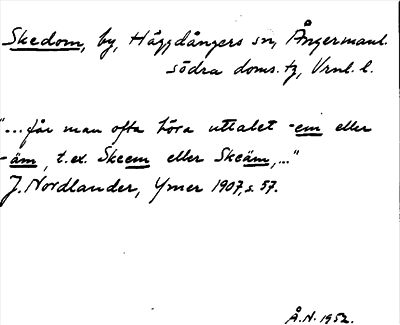 Skedom, by, Häggdångers sn, Ångermanl.
södra doms. tg, Vrnl. l.
"...får man ofta höra uttalet -em eller
-äm, t.ex. Skeem eller Skeäm,..."
J. Nordlander, Ymer 1907, s. 57.
Å.N. 1952.